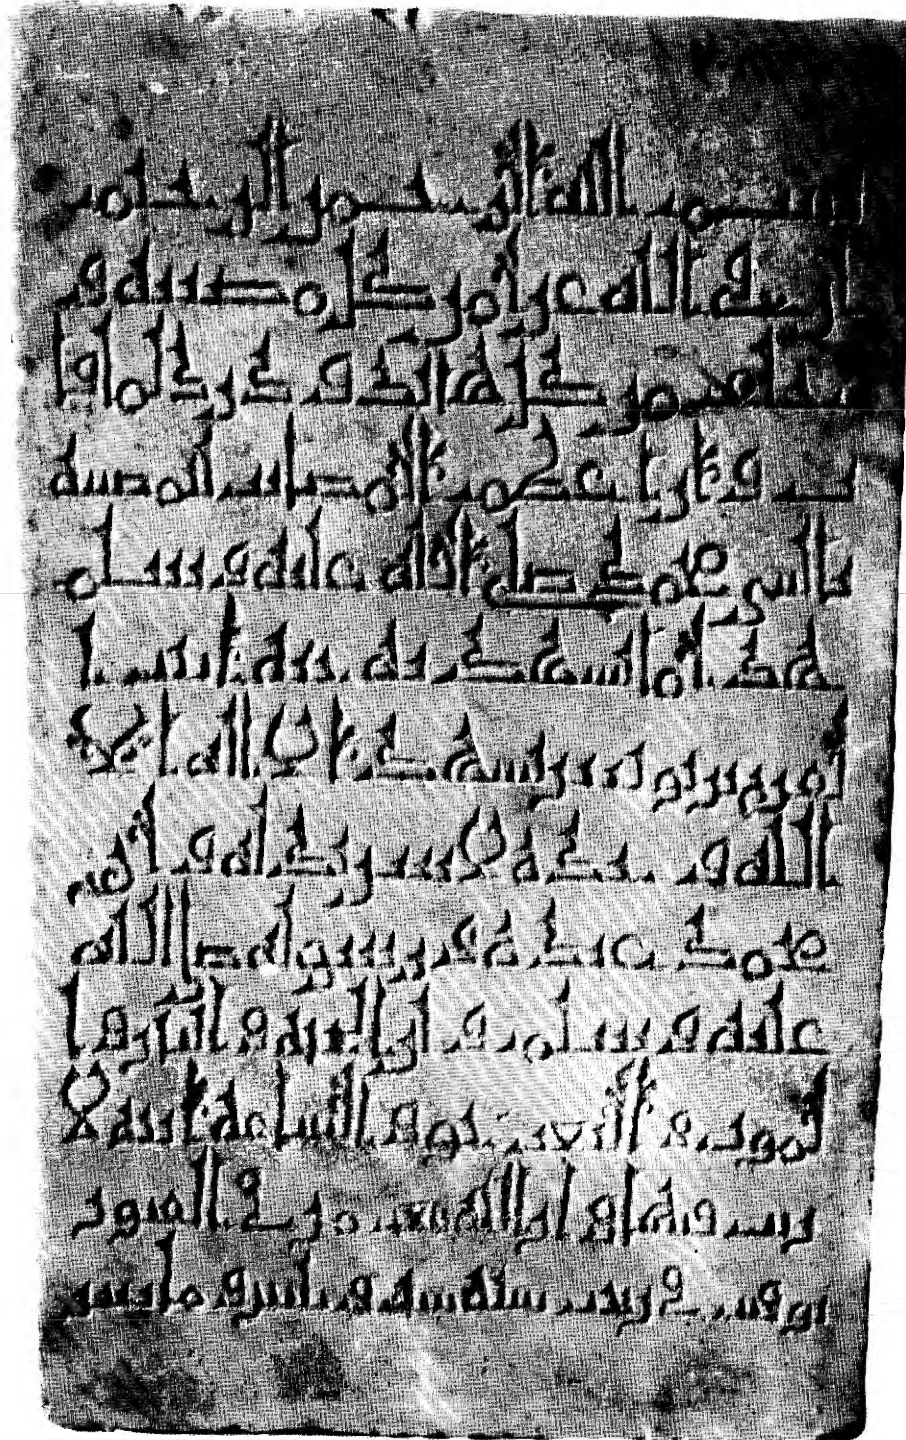 بسم الله الرحمن الرحيم
ان في الله عزا من كل مصيبة و
خلفا من كل هالك ودركا لما فا
ت وان اعظم المصايب المصيبة
بالنبي محمد صلى الله عليه وسلم
هذا ما تشهد به ابنت ا
تشهد الا اله الا
الله وحده لا شريك له وان
محمدا عبده ورسوله صلى الله
عليه وسلم وان الجنة والنار وا
لموت والبعث حق والساعة اتية لا
ريب فيها وان الله يبعث من في القبور
توفيت في سنة ومايتين